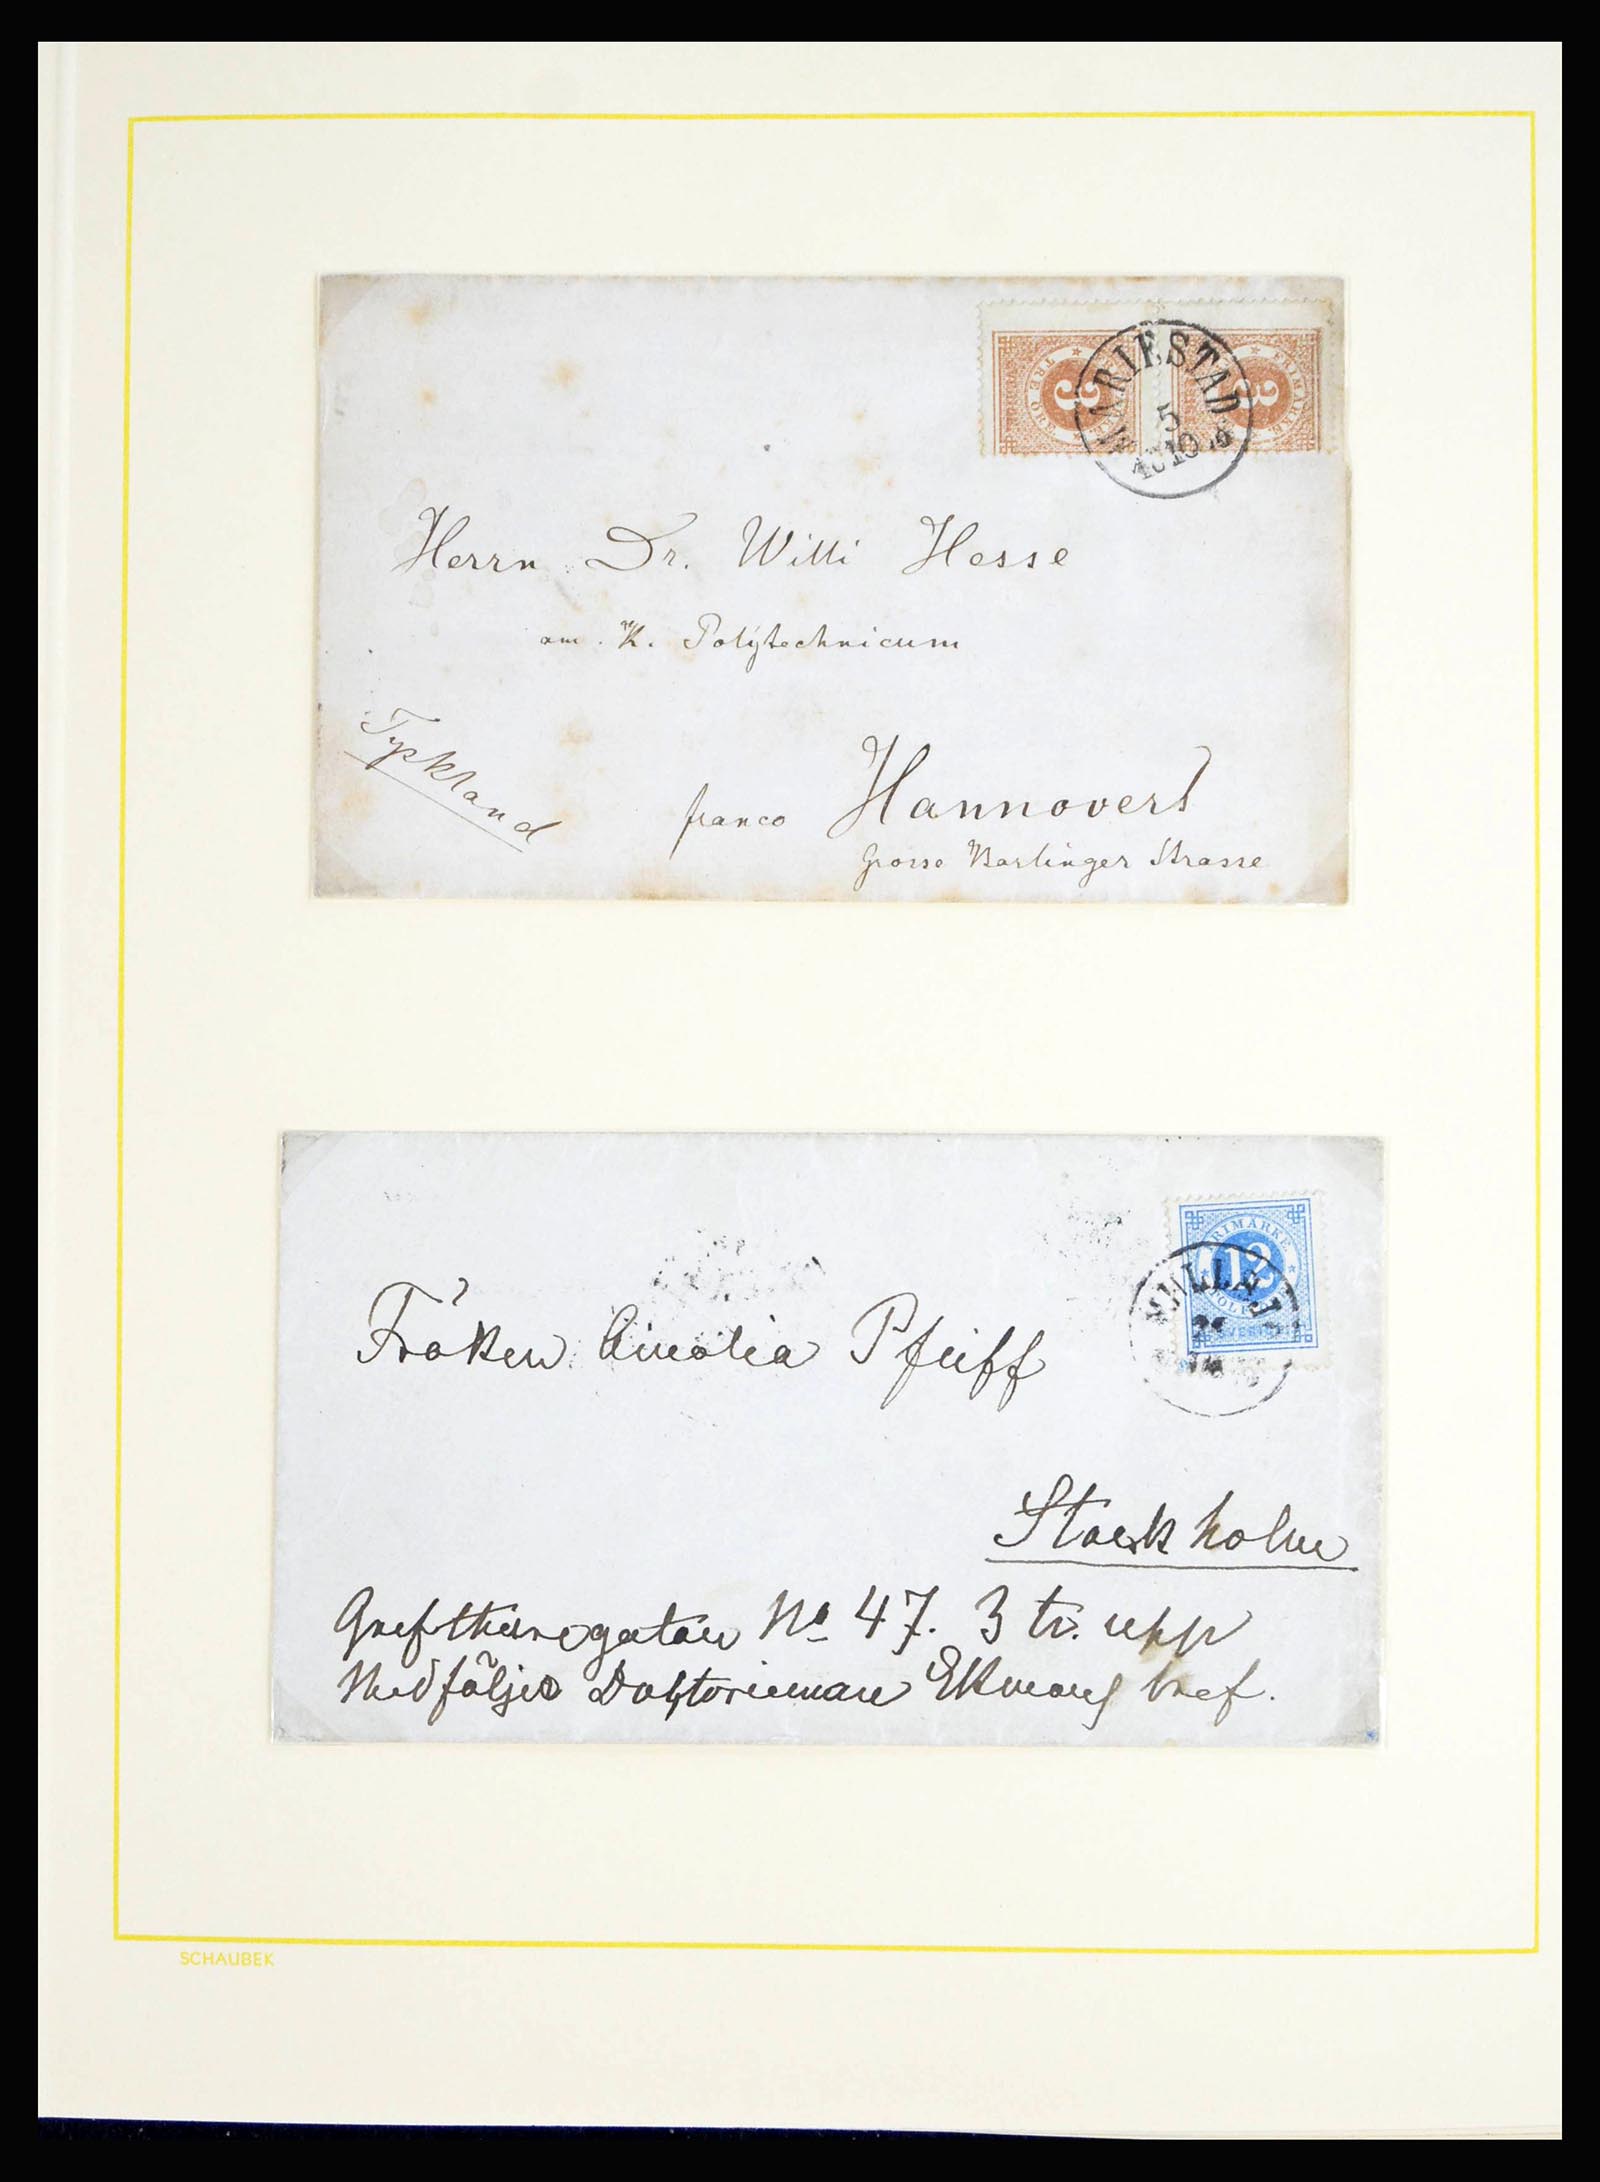 MARIESTAD
5
10
3
3
FRIMÄRKE
TRE
Herrn Dr. Willi Hesse
am K. Polytechnicum
Tyskland
franco Hannover
Grosse Barlinger Strasse
FRIMÄRKE
12
TOLF ÖRE
SVERIGE
Fröken Amalia Pfeiff
Stockholm
Grefthuregatan No 47. 3 tr. upp
Medföljer Doktorinnan Ekmans bref.
SCHAUBEK